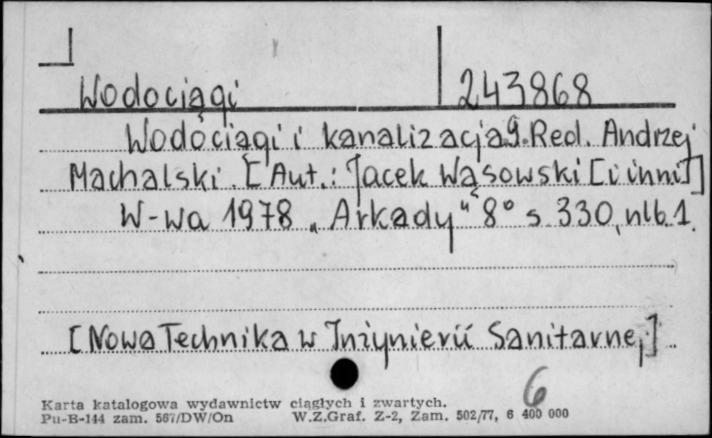 Wodociągi 243868
Wodociągi i kanalizacja 9. Red. Andrzej
Machalski. [Aut.: Jacek Wąsowski [i inni]]
W-wa 1978 „Arkady" 8° s 330, nlb. 1.
[Nowa Technika w Inżynierii Sanitarnej]
6
Karta katalogowa wydawnictw ciągłych i zwartych.
Pu-B-144 zam. 567/DW/On W.Z.Graf. Z-2, Zam. 502/77, 6 400 000